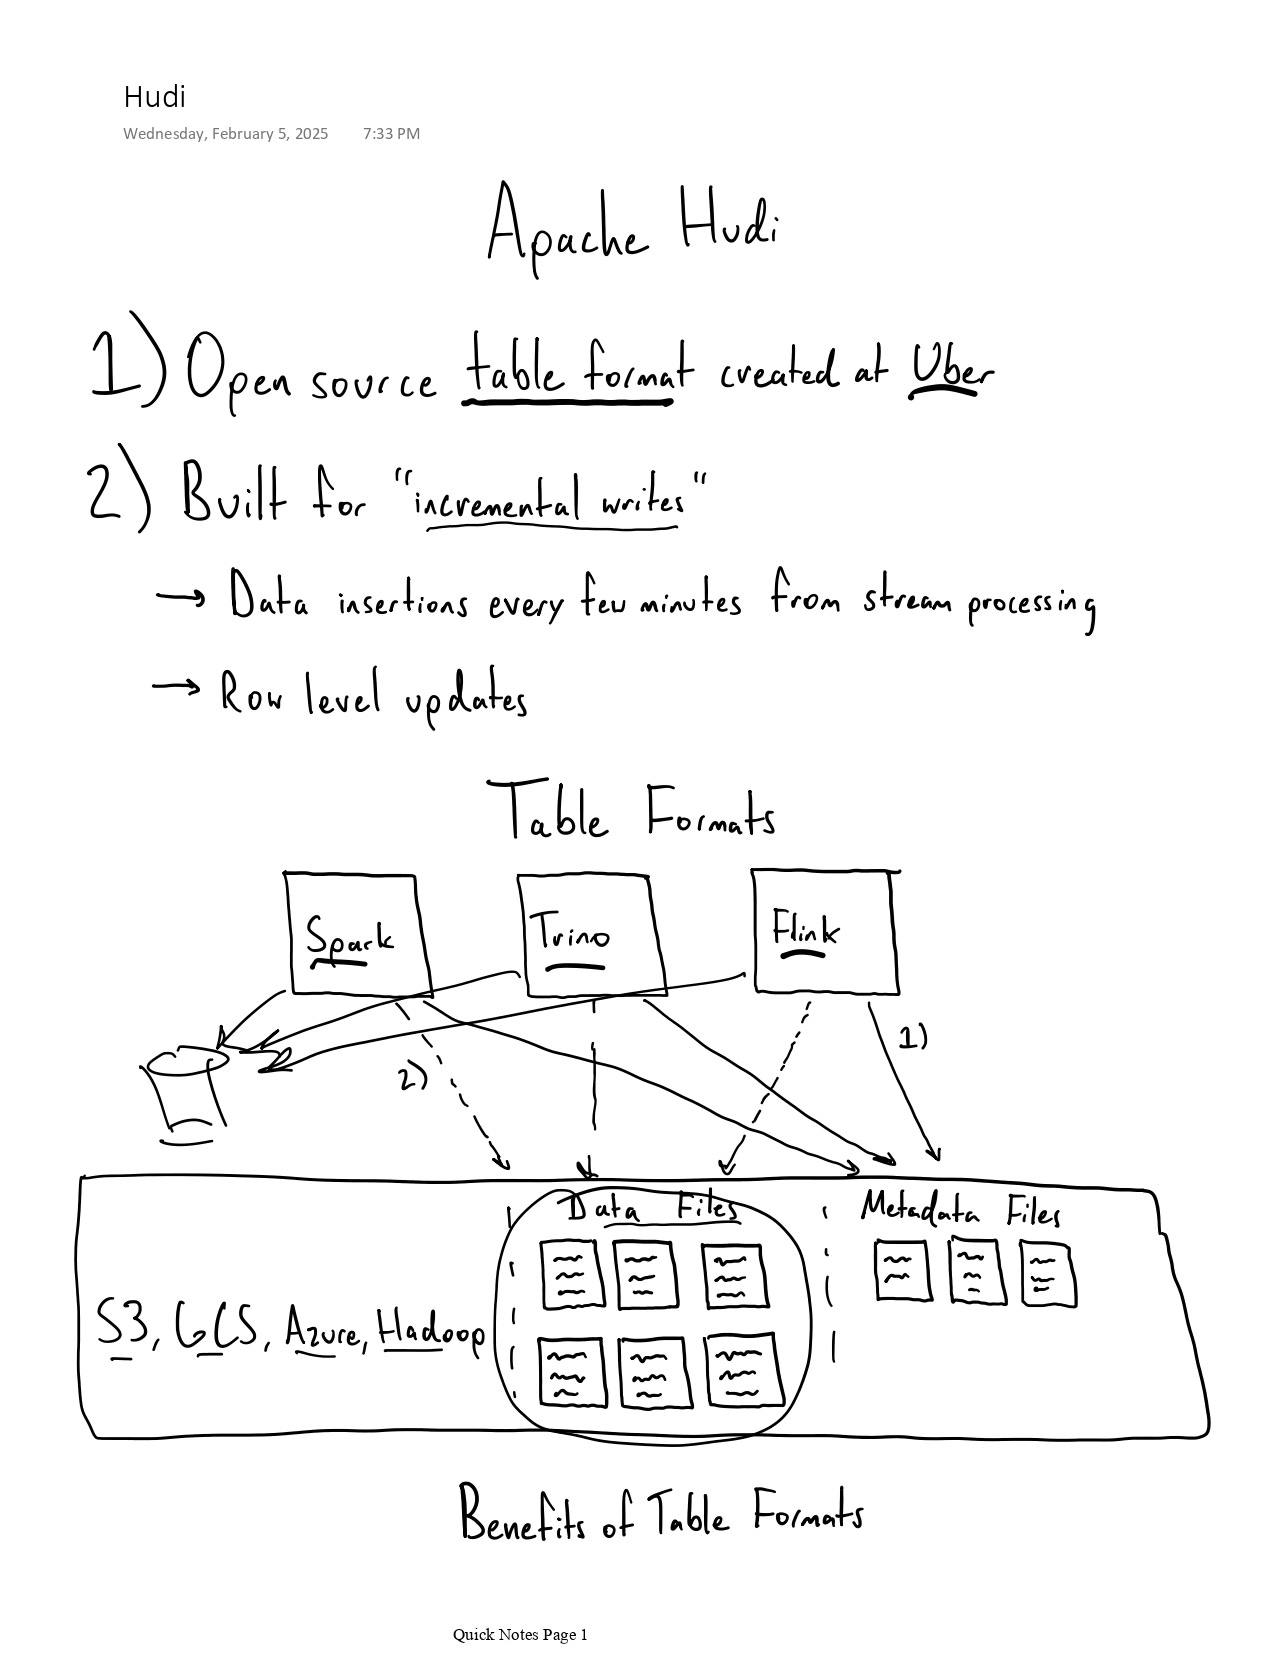 Hudi
Wednesday, February 5, 2025 7:33 PM
Apache Hudi
1) Open source table format created at Uber
2) Built for "incremental writes"
→ Data insertions every few minutes from stream processing
→ Row level updates
Table Formats
Spark
Trino
Flink
1)
2)
Data Files
Metadata Files
S3, GCS, Azure, Hadoop
Benefits of Table Formats
Quick Notes Page 1